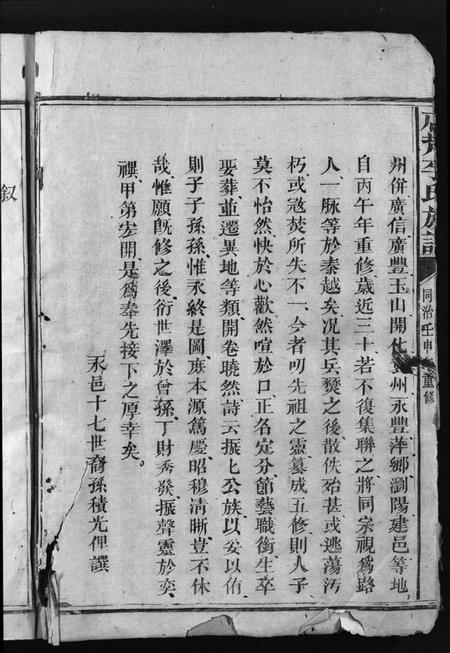 李氏族譜
同治壬申 重修
州併廣信廣豐玉山開化 州永豐萍鄉瀏陽建邑等地
自丙午年重修歲近三十若不復集聯之將同宗視爲路
人一脉等於秦越矣况其兵燹之後散佚殆甚或逃蕩污
朽或𡨥焚所失不一今者叨先祖之靈纂成五修則人子
莫不怡然快於心歡然喧於口正名定分節藝職銜生卒
娶葬並遷異地等類開卷曉然詩云振振公族以妥以侑
則子子孫孫惟永終是圖庻本源篤慶昭穆清晰豈不休
哉惟願既修之後衍世澤於曾孫丁財秀發振聲靈於奕
禩甲第宏開是爲奉先接下之厚幸矣
永邑十七世裔孫積光俾譔
叙